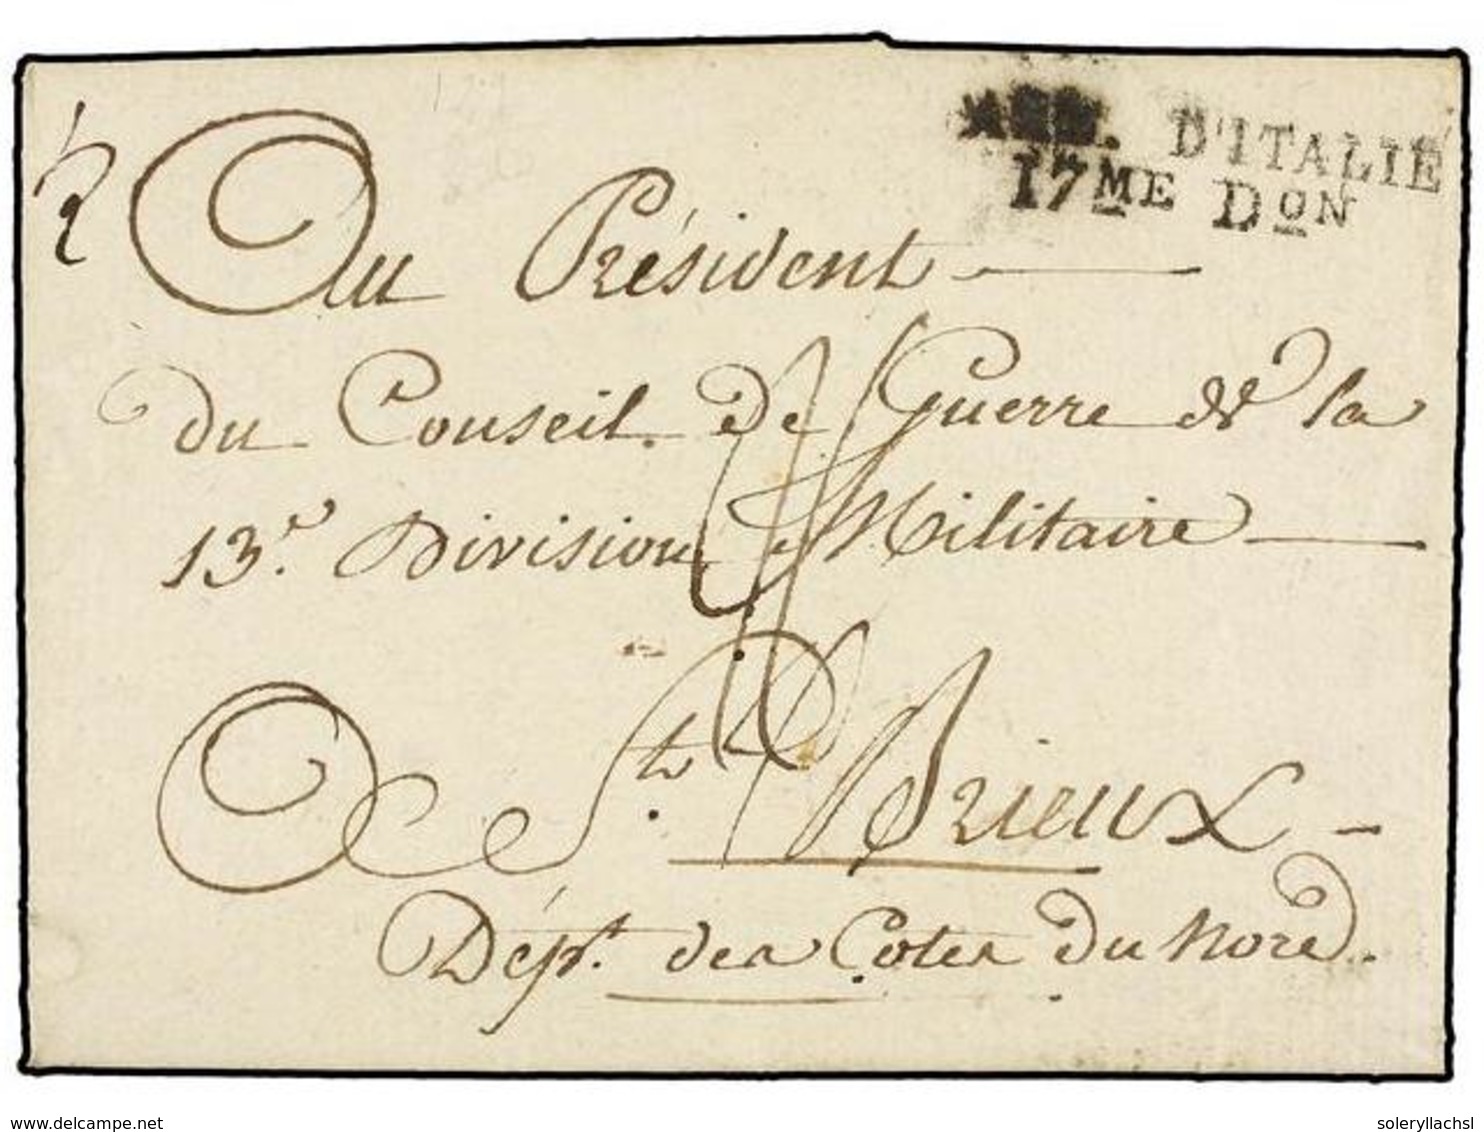 ARM. D'ITALIE
17ME DON
Au Président
du Conseil de Guerre de la
13e Division Militaire
A St. Brieux
Dépt. des Cotes du Nord.
delcampe.net
soleryllachsl